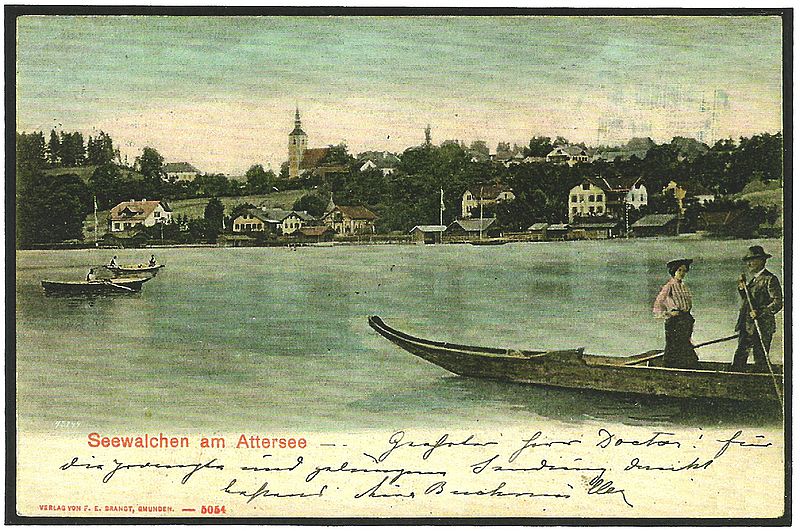 Seewalchen am Attersee — Geehrter Herr Doctor! für
die prompte und gelungene Sendung dankt
bestens
VERLAG VON F. E. BRANDT, GMUNDEN. — 5054